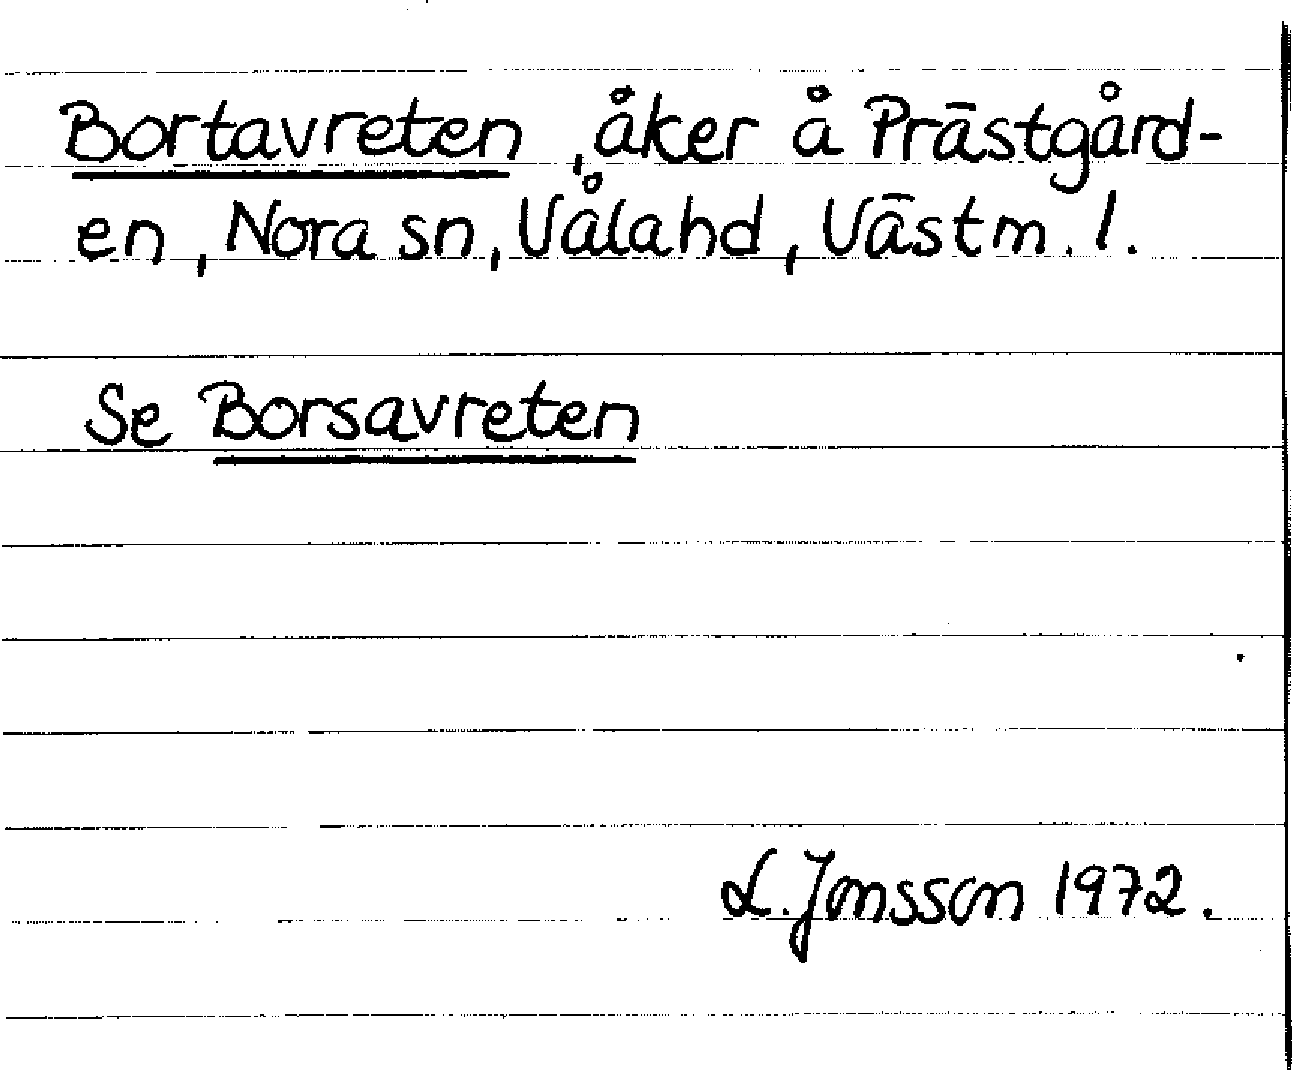 Bortavreten, åker å Prästgård-
en, Nora sn, Våla hd, Västm. l.
Se Borsavreten
L. Jonsson 1972.